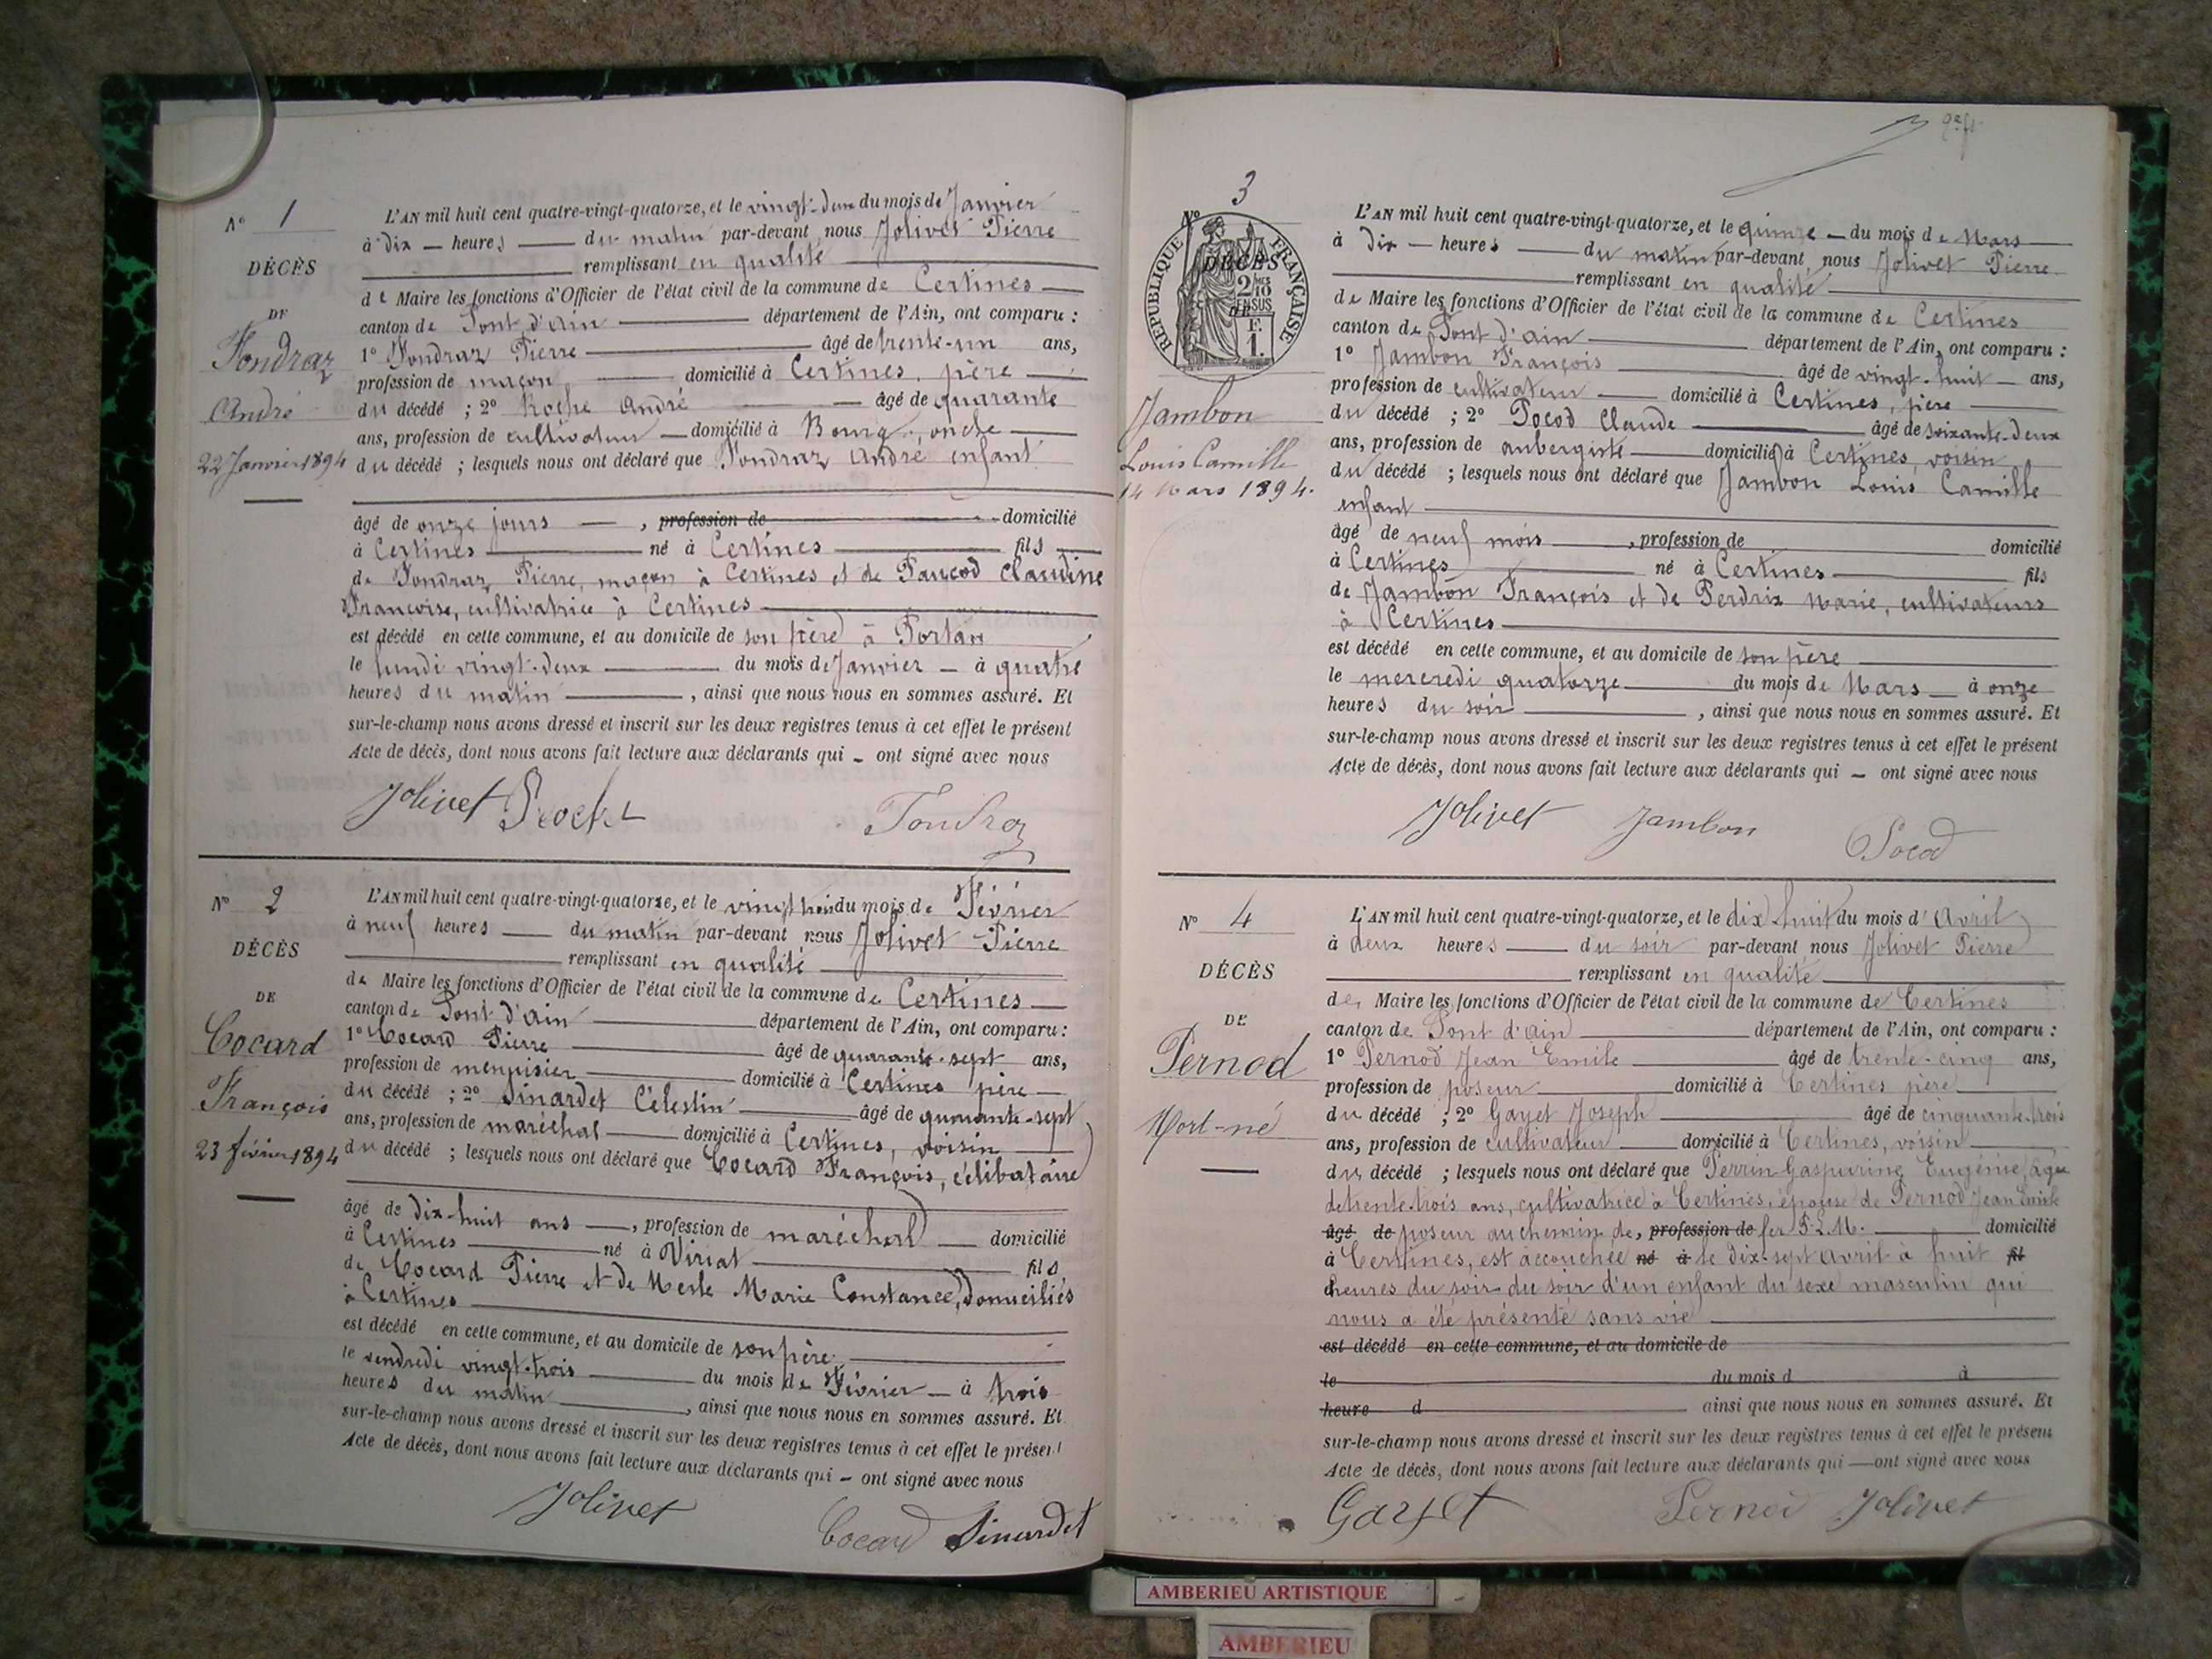 N° 1
DÉCÈS
DE
Tondraz
André
22 Janvier 1894
L'AN mil huit cent quatre-vingt-quatorze, et le vingt-deux du mois de Janvier
à dix — heures — du matin par-devant nous Jolivet Pierre
remplissant en qualité
de Maire les fonctions d'Officier de l'état civil de la commune de Certines
canton de Pont d'ain département de l'Ain, ont comparu :
1° Tondraz Pierre âgé de trente-un ans,
profession de maçon domicilié à Certines, père
du décédé ; 2° Roche André âgé de quarante
ans, profession de cultivateur domicilié à Bourg, oncle
du décédé ; lesquels nous ont déclaré que Tondraz André enfant
âgé de onze jours —, profession de domicilié
à Certines né à Certines fils
de Tondraz Pierre, maçon à Certines et de Claudine
Françoise, cultivatrice à Certines
est décédé en cette commune, et au domicile de son père à
le lundi vingt-deux du mois de Janvier — à quatre
heures du matin , ainsi que nous nous en sommes assuré. Et
sur-le-champ nous avons dressé et inscrit sur les deux registres tenus à cet effet le présent
Acte de décès, dont nous avons fait lecture aux déclarants qui — ont signé avec nous
Jolivet Tondraz
N° 2
DÉCÈS
DE
Cocard
François
23 février 1894
L'AN mil huit cent quatre-vingt-quatorze, et le vingt trois du mois de Février
à neuf heures — du matin par-devant nous Jolivet Pierre
remplissant en qualité
de Maire les fonctions d'Officier de l'état civil de la commune de Certines
canton de Pont d'ain département de l'Ain, ont comparu :
1° Cocard Pierre âgé de quarante-sept ans,
profession de menuisier domicilié à Certines père
du décédé ; 2° Sinardet Célestin âgé de quarante-sept
ans, profession de maréchal domicilié à Certines, voisin
du décédé ; lesquels nous ont déclaré que Cocard François, célibataire
âgé de dix-huit ans —, profession de maréchal domicilié
à Certines né à Viriat fils
de Cocard Pierre et de Merle Marie Constance, domiciliés
à Certines
est décédé en cette commune, et au domicile de son père
le vendredi vingt-trois du mois de Février — à trois
heures du matin , ainsi que nous nous en sommes assuré. Et
sur-le-champ nous avons dressé et inscrit sur les deux registres tenus à cet effet le présent
Acte de décès, dont nous avons fait lecture aux déclarants qui — ont signé avec nous
Jolivet Cocard Sinardet
3
N°
RÉPUBLIQUE FRANÇAISE
DÉCÈS
2 MES 10
EN SUS
DE
F.
1.
Jambon
Louis Camille
14 Mars 1894.
L'AN mil huit cent quatre-vingt-quatorze, et le quinze — du mois de Mars
à dix — heures — du matin par-devant nous Jolivet Pierre
remplissant en qualité
de Maire les fonctions d'Officier de l'état civil de la commune de Certines
canton de Pont d'ain département de l'Ain, ont comparu :
1° Jambon François âgé de vingt-huit — ans,
profession de cultivateur domicilié à Certines, père
du décédé ; 2° Pocod Claude âgé de soixante-deux
ans, profession de aubergiste domicilié à Certines, voisin
du décédé ; lesquels nous ont déclaré que Jambon Louis Camille
enfant
âgé de neuf mois , profession de domicilié
à Certines né à Certines fils
de Jambon François et de Perdrix Marie, cultivateurs
à Certines
est décédé en cette commune, et au domicile de son père
le mercredi quatorze du mois de Mars — à onze
heures du soir , ainsi que nous nous en sommes assuré. Et
sur-le-champ nous avons dressé et inscrit sur les deux registres tenus à cet effet le présent
Acte de décès, dont nous avons fait lecture aux déclarants qui — ont signé avec nous
Jolivet Jambon Pocod
N° 4
DÉCÈS
DE
Pernod
Mort-né
L'AN mil huit cent quatre-vingt-quatorze, et le dix-huit du mois d'Avril
à deux heures — du soir par-devant nous Jolivet Pierre
remplissant en qualité
de Maire les fonctions d'Officier de l'état civil de la commune de Certines
canton de Pont d'ain département de l'Ain, ont comparu :
1° Pernod Jean Emile âgé de trente-cinq ans,
profession de poseur domicilié à Certines père
du décédé ; 2° Gayet Joseph âgé de cinquante-trois
ans, profession de cultivateur domicilié à Certines, voisin
du décédé ; lesquels nous ont déclaré que Perrin Gaspurine Eugénie, âgée
de trente-trois ans, cultivatrice à Certines, épouse de Pernod Jean Emile
âgé de poseur au chemin de, profession de fer P.L.M. domicilié
à Certines, est accouchée né à le dix-sept avril à huit fil
heures du soir du soir d'un enfant du sexe masculin qui
nous a été présenté sans vie
est décédé en cette commune, et au domicile de
le du mois d à
heure d ainsi que nous nous en sommes assuré. Et
sur-le-champ nous avons dressé et inscrit sur les deux registres tenus à cet effet le présent
Acte de décès, dont nous avons fait lecture aux déclarants qui — ont signé avec nous
Gayet Pernod Jolivet
AMBERIEU ARTISTIQUE
AMBERIEU